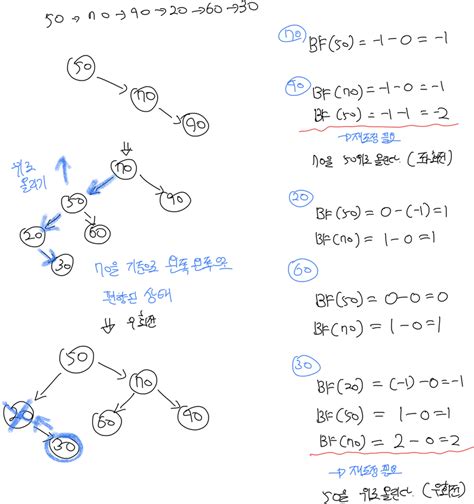 50 → 70 → 90 → 20 → 60 → 30
50
70
90
⇓
위로
올리기
70
50
90
20
60
30
70을 기준으로 왼쪽왼쪽으로
편향된 상태
⇓ 우회전
50
20
70
30
60
90
70
BF(50) = -1-0 = -1
90
BF(70) = -1-0 = -1
BF(50) = -1-1 = -2
→ 재조정 필요
70을 50위로 올린다. (좌회전)
20
BF(50) = 0-(-1) = 1
BF(70) = 1-0 = 1
60
BF(50) = 0-0 = 0
BF(70) = 1-0 = 1
30
BF(20) = (-1)-0 = -1
BF(50) = 1-0 = 1
BF(70) = 2-0 = 2
→ 재조정 필요
50을 위로 올린다. (우회전)